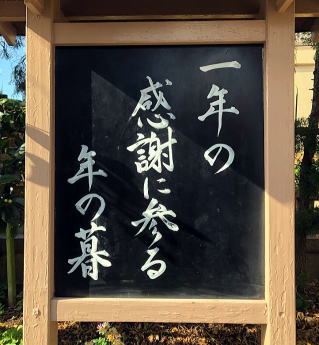 一年の
感謝に参る
年の暮